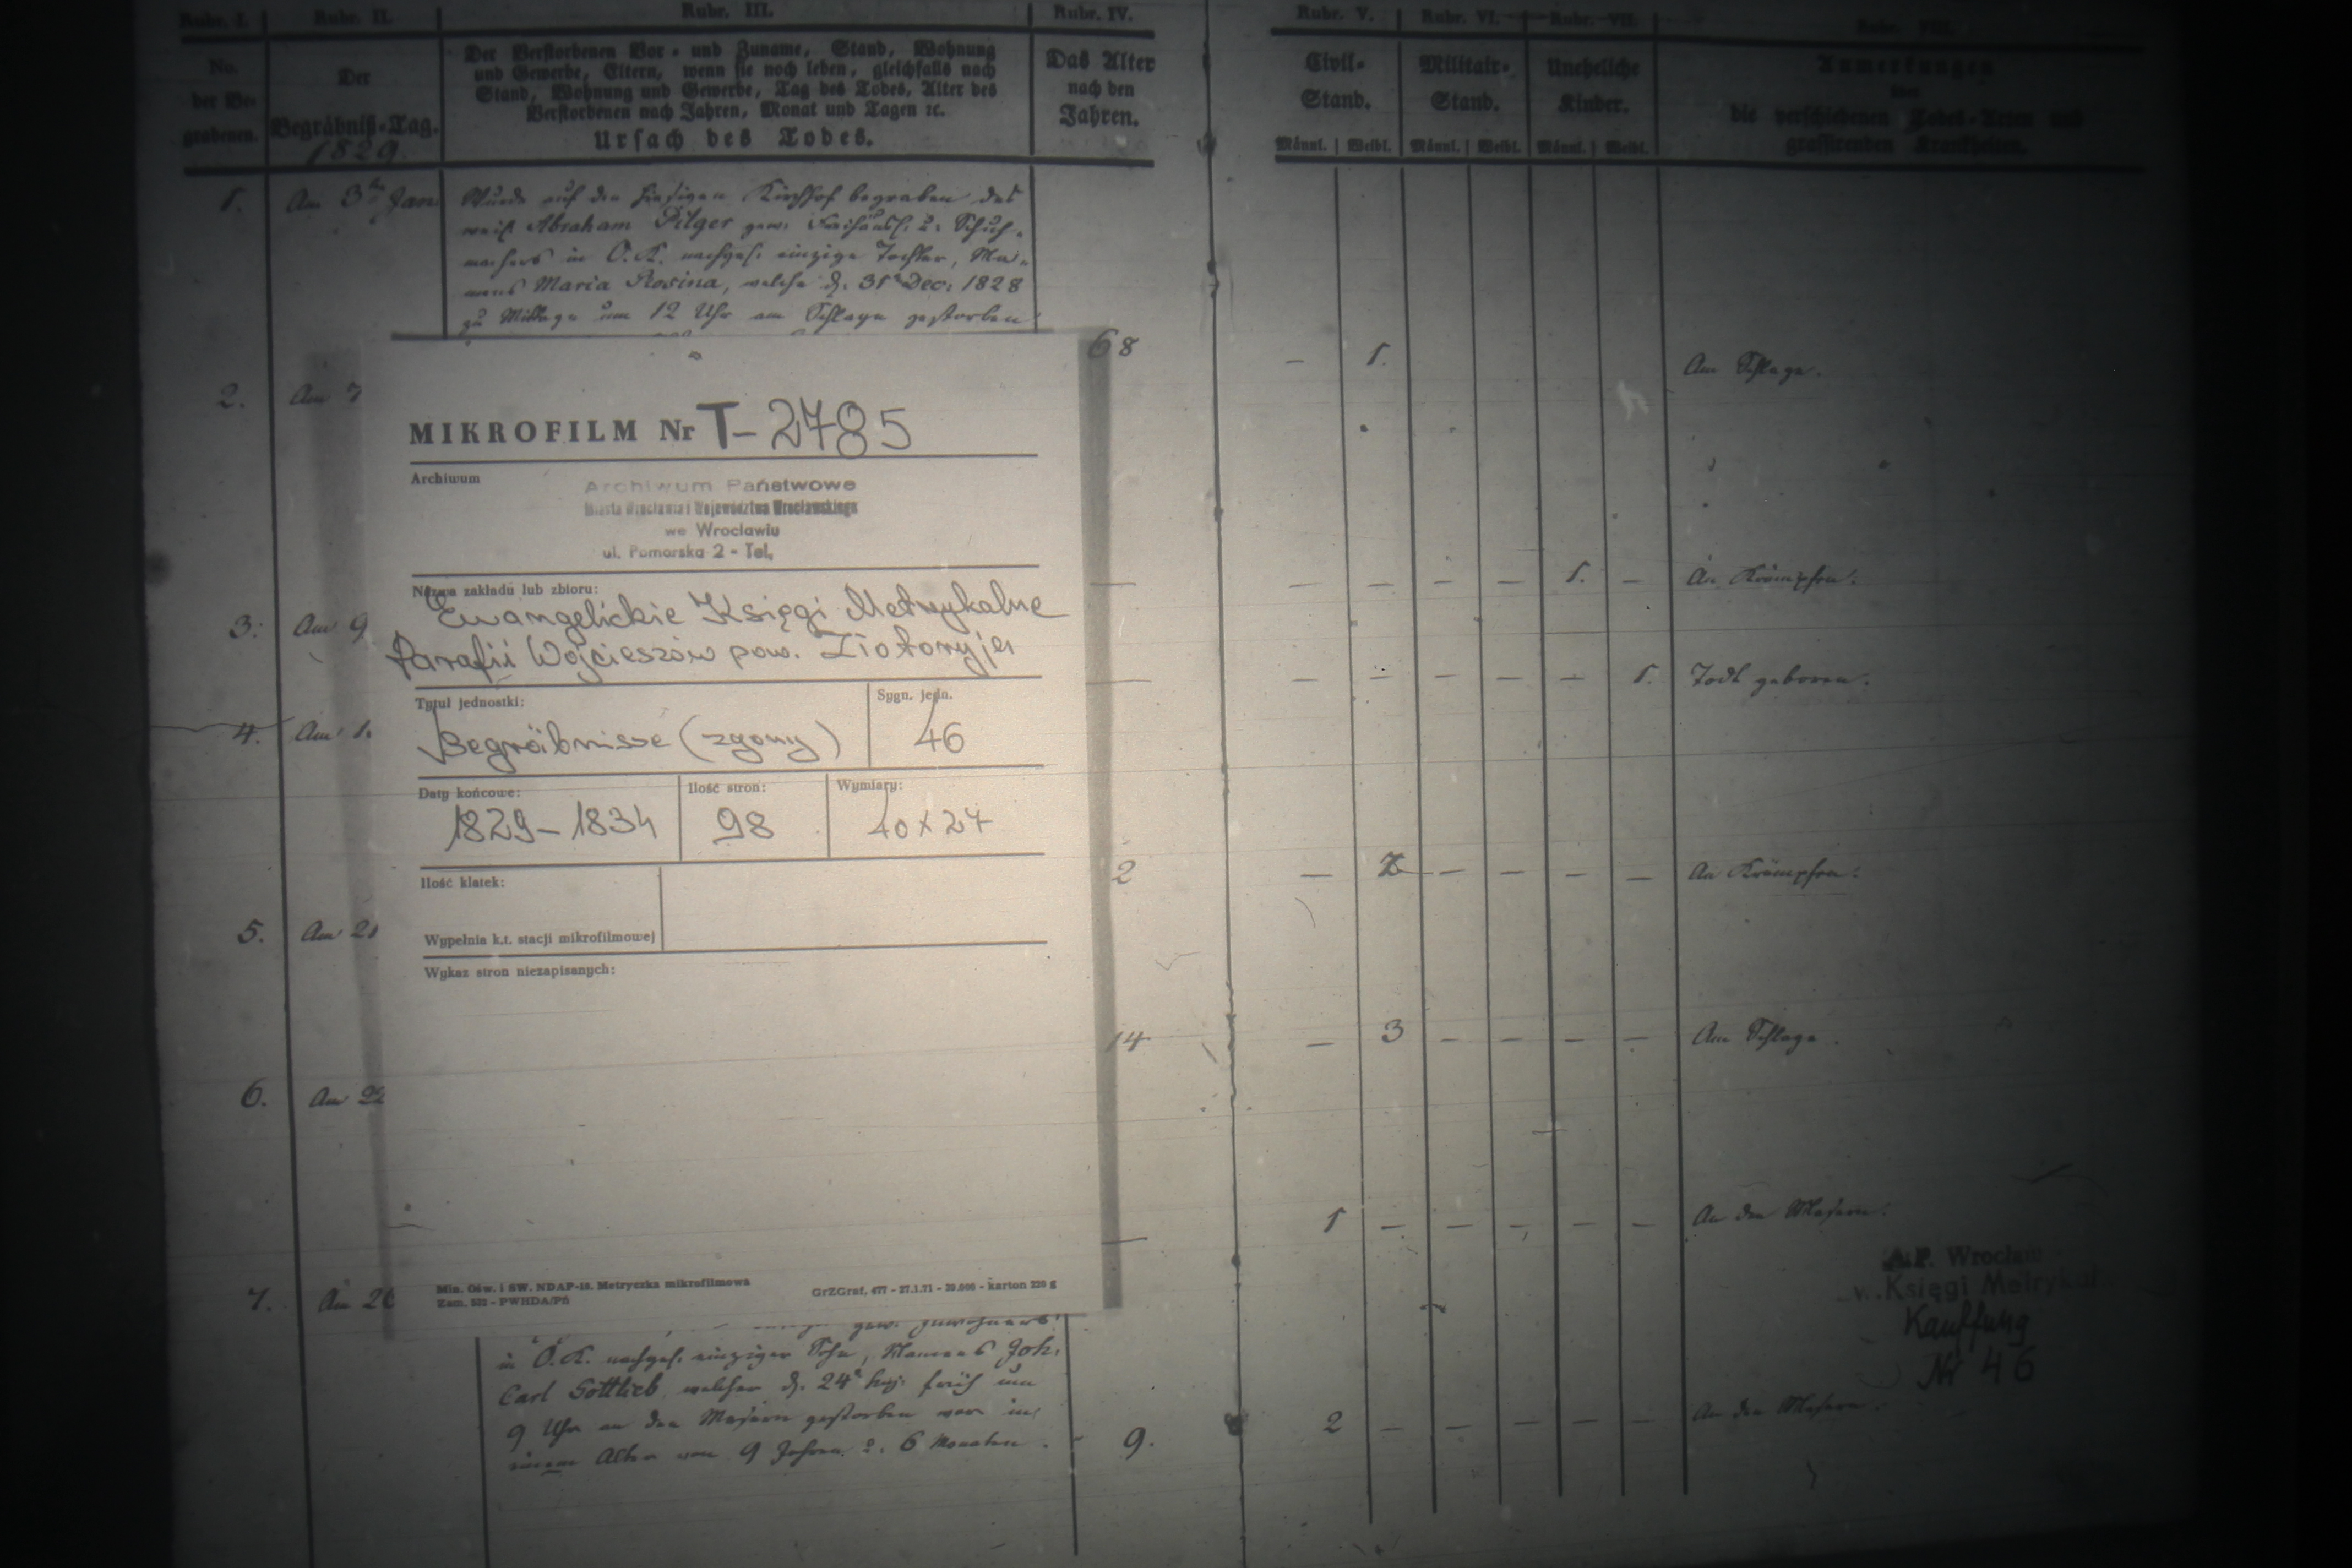 Rubr. I.
Rubr. II.
Rubr. III.
Rubr. IV.
Rubr. V.
Rubr. VI.
Rubr. VII.
Rubr. VIII.
No.
der Be-
grabenen.
Der
Begräbniß-Tag.
1829.
Der Verstorbenen Vor- und Zuname, Stand, Wohnung
und Gewerbe, Eltern, wenn sie noch leben, gleichfalls nach
Stand, Wohnung und Gewerbe, Tag des Todes, Alter des
Verstorbenen nach Jahren, Monat und Tagen ꝛc.
Ursach des Todes.
Das Alter
nach den
Jahren.
Civil-
Stand.
Militair-
Stand.
Uneheliche
Kinder.
Anmerkungen
über
die verschiedenen Todes-Arten und
grassirenden Krankheiten.
Männl. | Weibl. Männl. | Weibl. Männl. | Weibl.
1. Am 3ten Jan.
Wurde auf den hiesigen Kirchhof begraben des
weil. Abraham Pilger gew. Freihäusl. u. Schuh-
machers in O.K. nachgel. einzige Tochter, Na-
mens Maria Rosina, welche d. 31t Dec: 1828
zu Mittage um 12 Uhr am Schlage gestorben
68 — 1. Am Schlage.
2. Am 7
MIKROFILM Nr T-2785
Archiwum
Archiwum Państwowe
Miasta Wrocławia i Województwa Wrocławskiego
we Wrocławiu
ul. Pomorska 2 - Tel.
Nazwa zakładu lub zbioru:
Ewangelickie Księgi Metrykalne
Parafii Wojcieszów pow. Złotoryja
Tytuł jednostki:
Begräbnisse (zgony)
Sygn. jedn.
46
Daty końcowe:
1829-1834
Ilość stron:
98
Wymiary:
40 x 24
Ilość klatek:
Wypełnia k.t. stacji mikrofilmowej
Wykaz stron niezapisanych:
Min. Ośw. i SW. NDAP-16. Metryczka mikrofilmowa
Zam. 522 - PWHDA/Pń
GrZGraf. 477 - 27.1.71 - 20.000 - karton 220 g
— — — — — 1. — An Krämpfen.
3. Am 9
— — — — — — 1. Todt geboren.
4. Am 1
2 — 2 — — — — An Krämpfen.
5. Am 21
14 — 3 — — — — Am Schlage.
6. Am 22
— 1 — — — — — An den Masern.
7. Am 26
gew. Inwohners
in O.K. nachgel. einziger Sohn, Namens Joh.
Carl Gottlieb, welcher d. 24t huj. früh um
9 Uhr an den Masern gestorben war in
einem Alter von 9 Jahren u. 6 Monaten.
9. 2 — — — — — An den Masern.
A.P. Wrocław
w. Księgi Metrykal
Kauffung
Nr 46